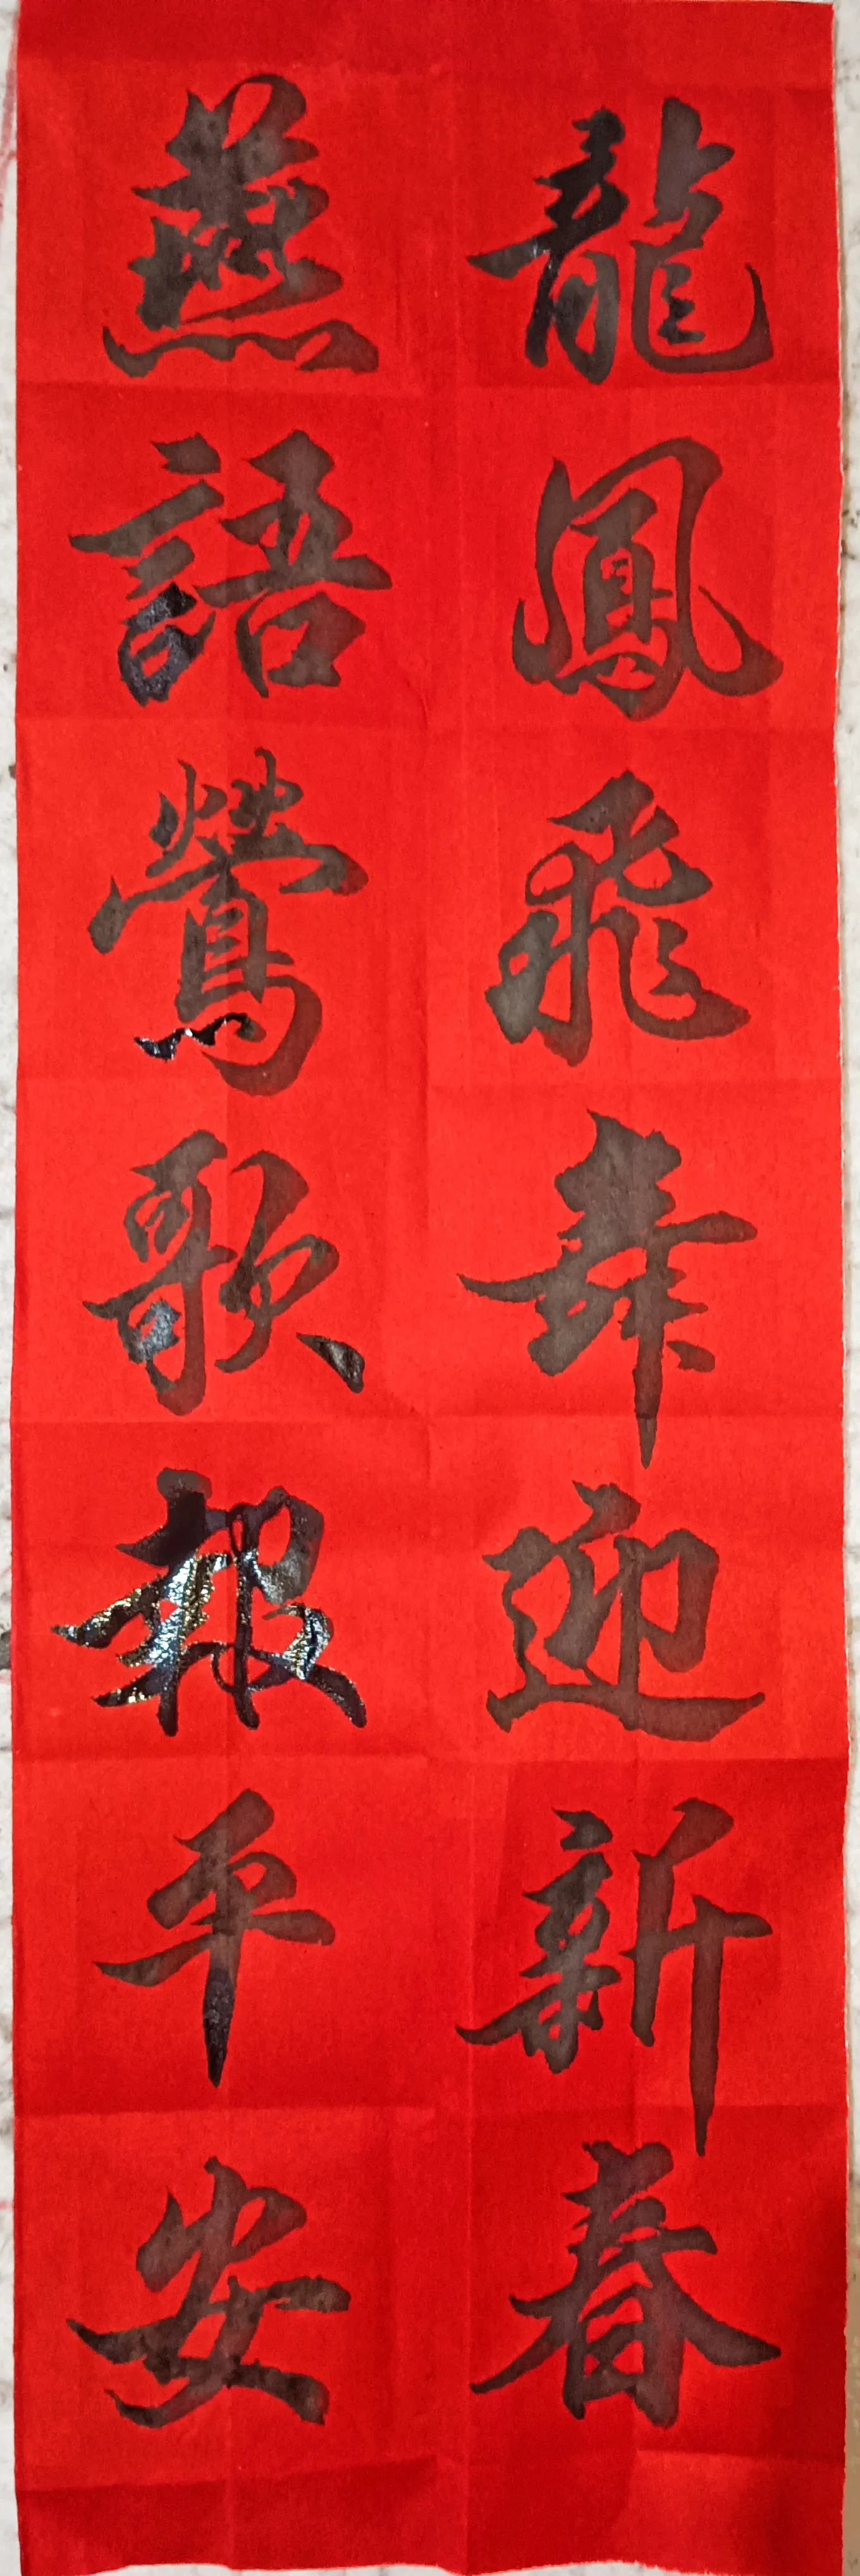 龍鳳飛舞迎新春
燕語鶯歌報平安